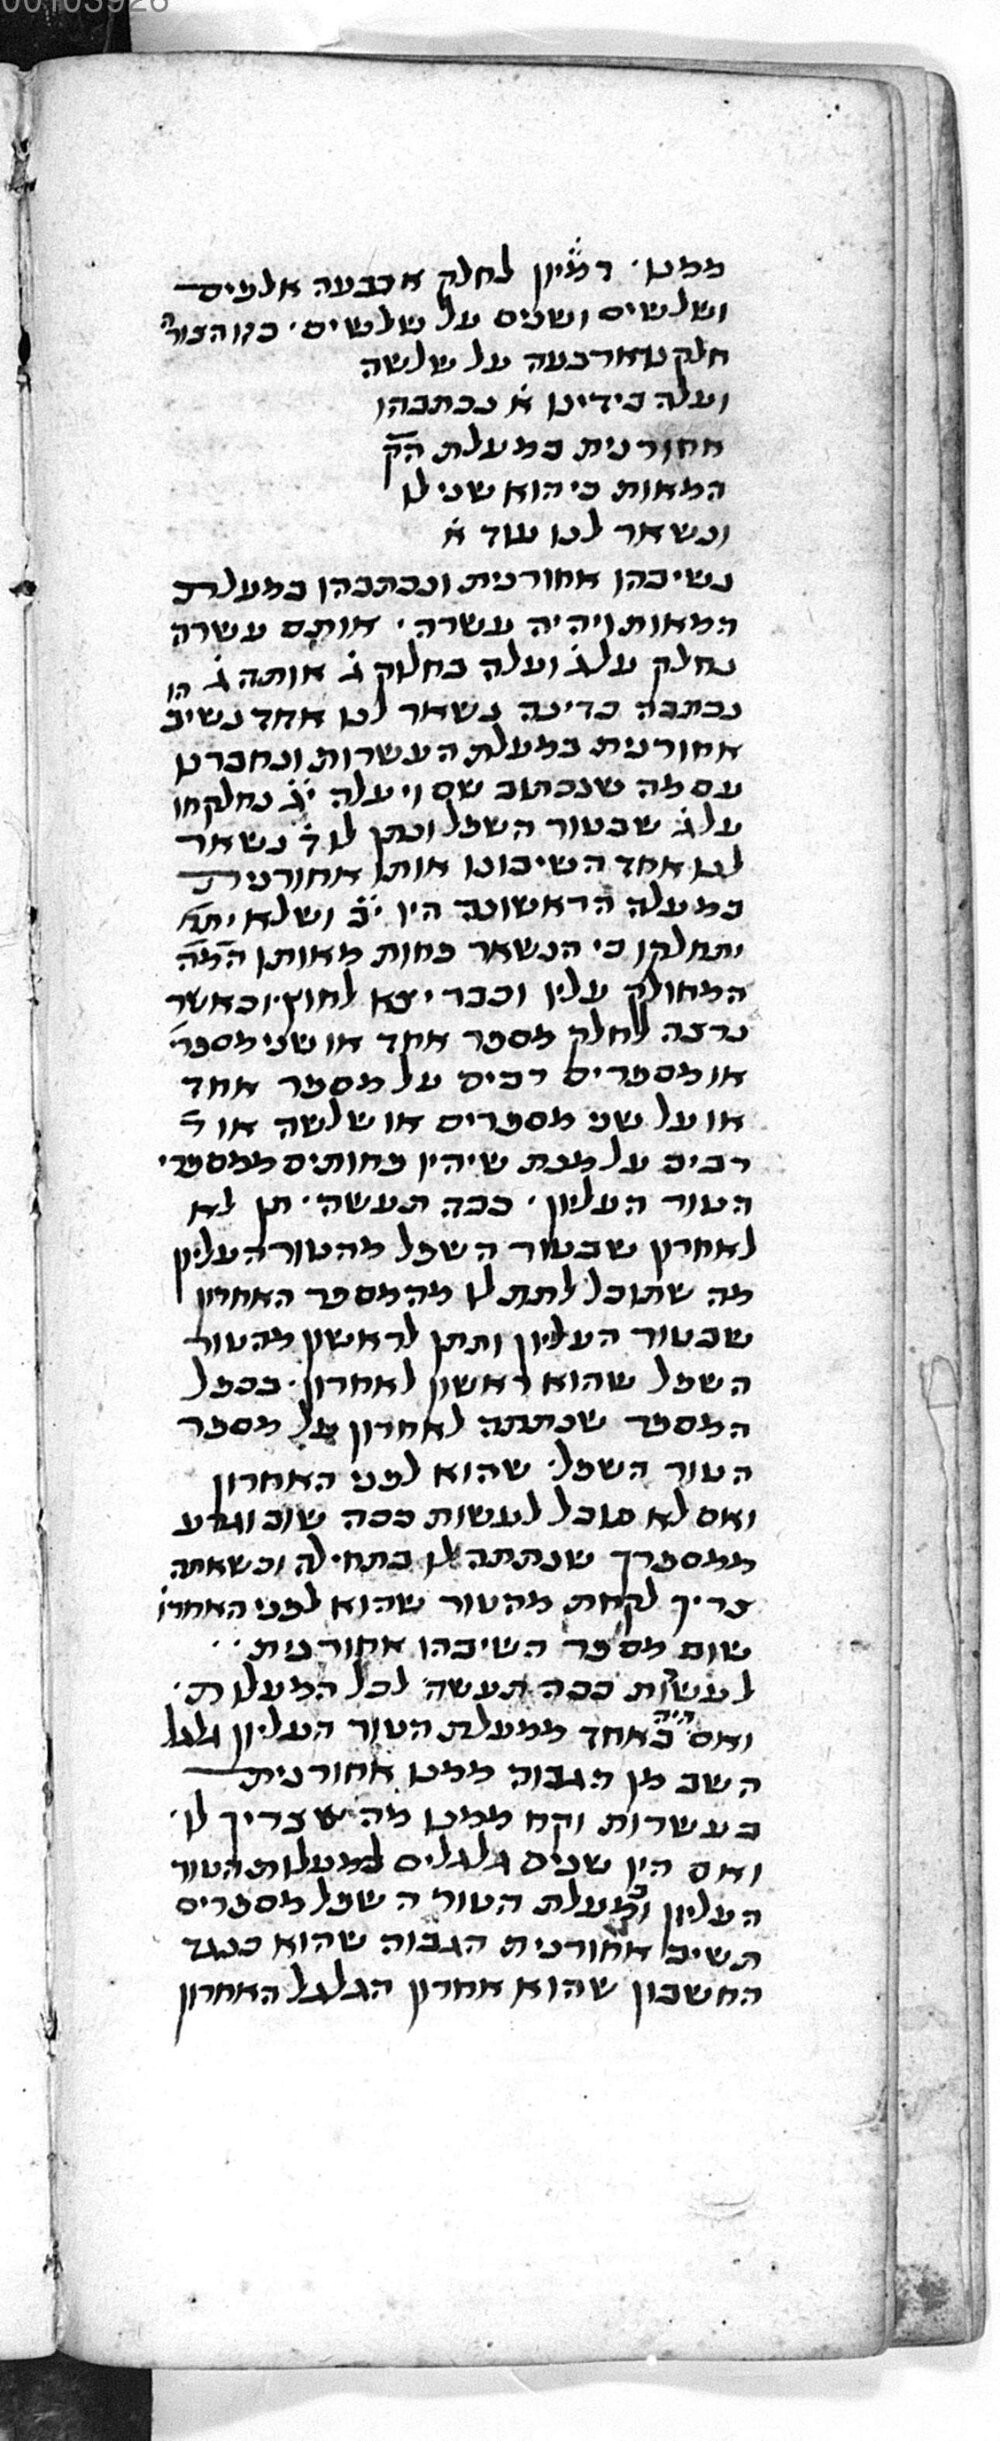 ממנו׳ דמיון לחלק ארבעה אלפים
ושלשים ושנים על שלשים׳ כזו הצורה
חלקנו ארבעה על שלשה
ועלה בידינו א׳ נכתבהו
אחורנית במעלת הק
המאות כי הוא שני לו
ונשאר לנו עוד א׳
נשיבהו אחורנית ונכתבהו במעלת
המאות ויהיה עשרה׳ אותם עשרה
נחלק על ג׳ ועלה בחלוק ג׳ אותה ג׳ הו
נכתבה כדינה נשאר לנו אחד נשיב
אחורנית במעלת העשרות ונחברנו
עם מה שנכתוב שם ויעלה י״ג נחלקהו
על ג׳ שבטור השפל ונתן לו ד׳ נשאר
לנו אחד השיבונו אותו אחורנית
במעלה הראשונה היו י״ב ושלא ית׳
יתחלקו כי הנשאר פחות מאותן המ׳ה
המחולק עליו וכבר יצא לחוץ׳ וכאשר
נרצה לחלק מספר אחד או שני מספר׳
או מספרים רבים על מספר אחד
או על שני מספרים או שלשה או ר׳
רבים על מנת שיהיו פחותים ממספרי
הטור העליון׳ ככה תעשה׳ תן לא
לאחרון שבטור השפל מהטור העליון
מה שתוכל לתת לו מהמספר האחרון
שבטור העליון ותתן לראשון מהטור
השפל שהוא ראשון לאחרון׳ בכפל
המספר שנתתה לאחרון על מספר
הטור השפל׳ שהוא לפני האחרון
ואם לא תוכל לעשות ככה שוב וגרע
ממספרך שנתתה לו בתחילה וכשאתה
צריך לקחת מהטור שהוא לפני האחרו׳
שום מספר השיבהו אחורנית׳׳
לעשות ככה תעשה׳ לכל המעלות׳
ואם היה באחד ממעלת הטור העליון גלגל
השב מן הגבוה ממנו אחורנית
בעשרות וקח ממנו מה שצריך לו׳
ואם היו שנים גלגלים במעלות הטור
העליון ובמעלת הטור השפל מספרים
תשיב אחורנית הגבוה שהוא כנגד
החשבון שהוא אחרון הגלגל האחרון